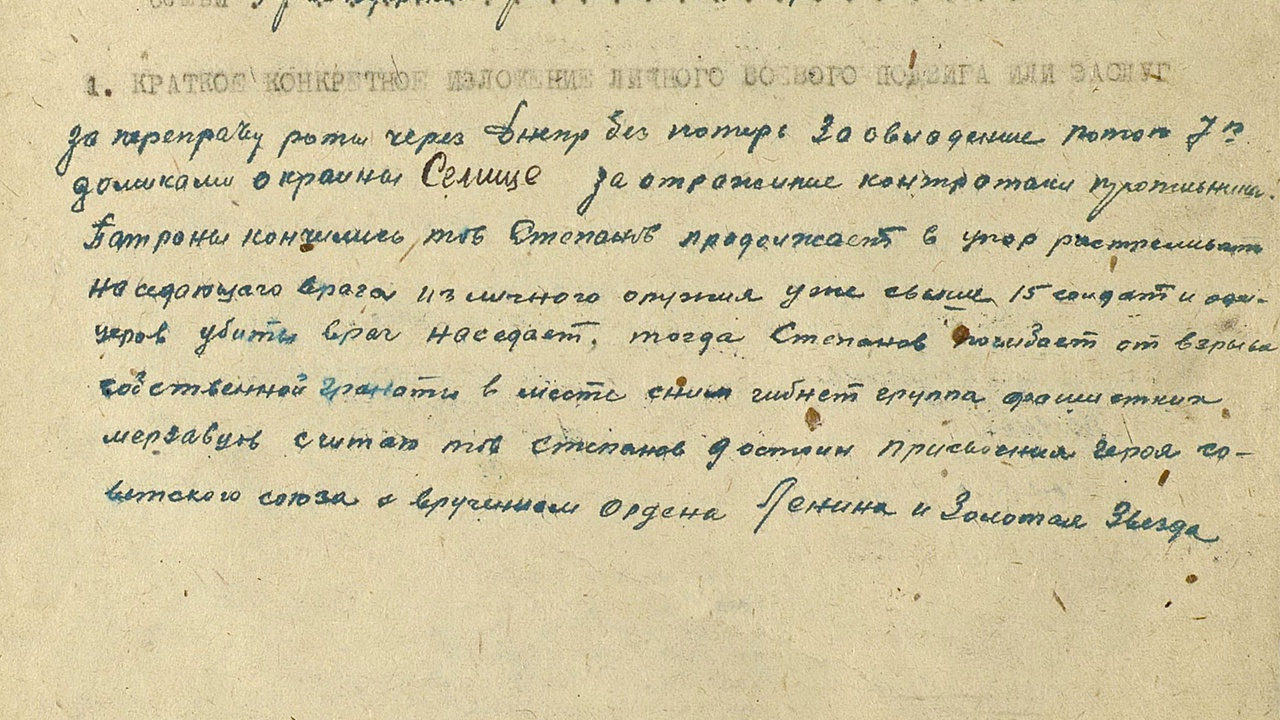 1. КРАТКОЕ КОНКРЕТНОЕ ИЗЛОЖЕНИЕ ЛИЧНОГО БОЕВОГО ПОДВИГА ИЛИ ЗАСЛУГ
За переправу роты через Днепр без потерь За овладение 7ю
домиками окраины Селище за отражение контратаки противника.
Патроны кончились, тов Степанов продолжает в упор растреливать
наседающего врага из личного оружия уже свыше 15 солдат и офи-
церов убиты враг наседает, тогда Степанов погибает от взрыва
собственной гранаты в месте сним гибнет группа фашистких
мерзавцов считаю тов Степанов достоин присвоения героя Со-
ветского союза с вручением Ордена Ленина и Золотая Звезда